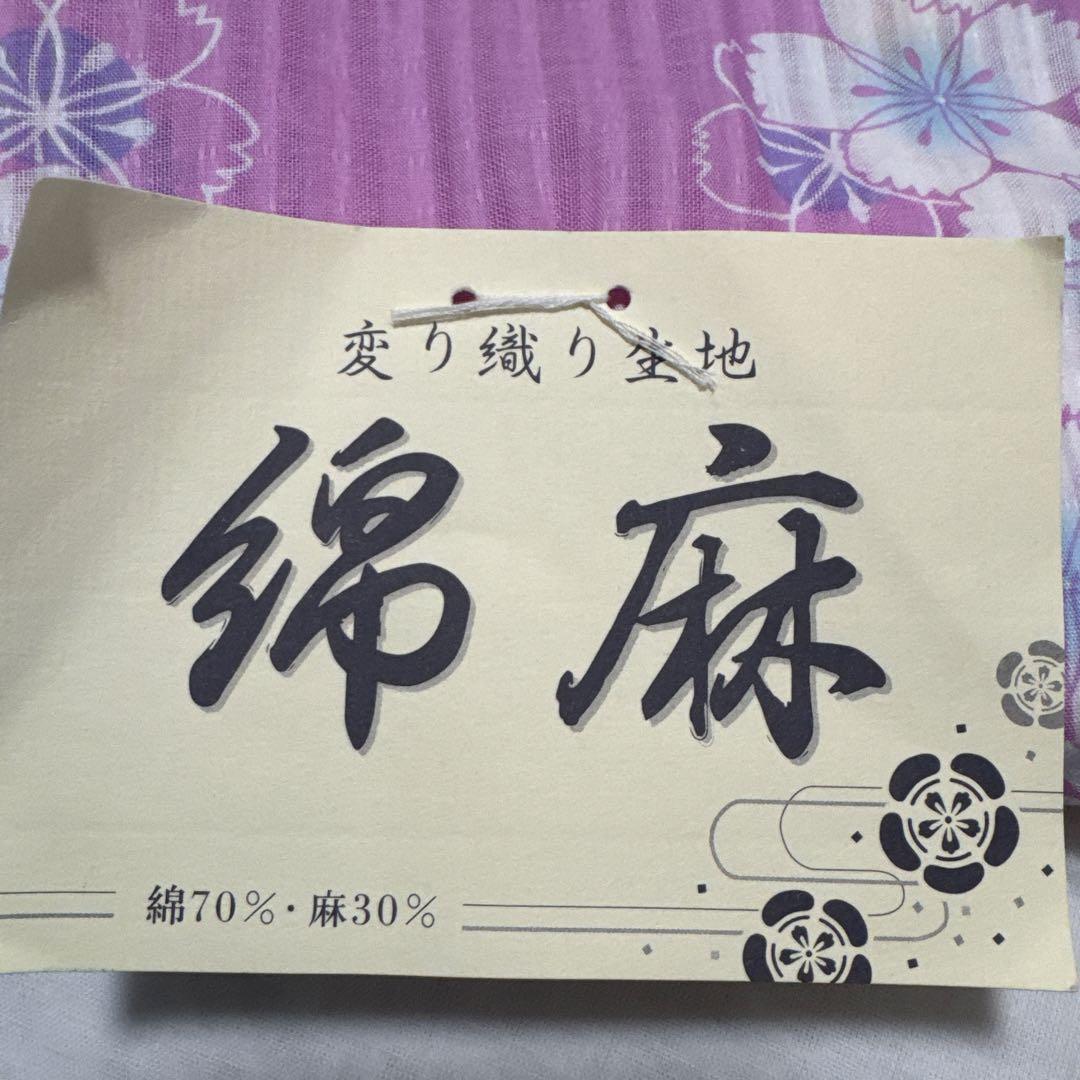 変り織り生地
綿麻
綿70%・麻30%